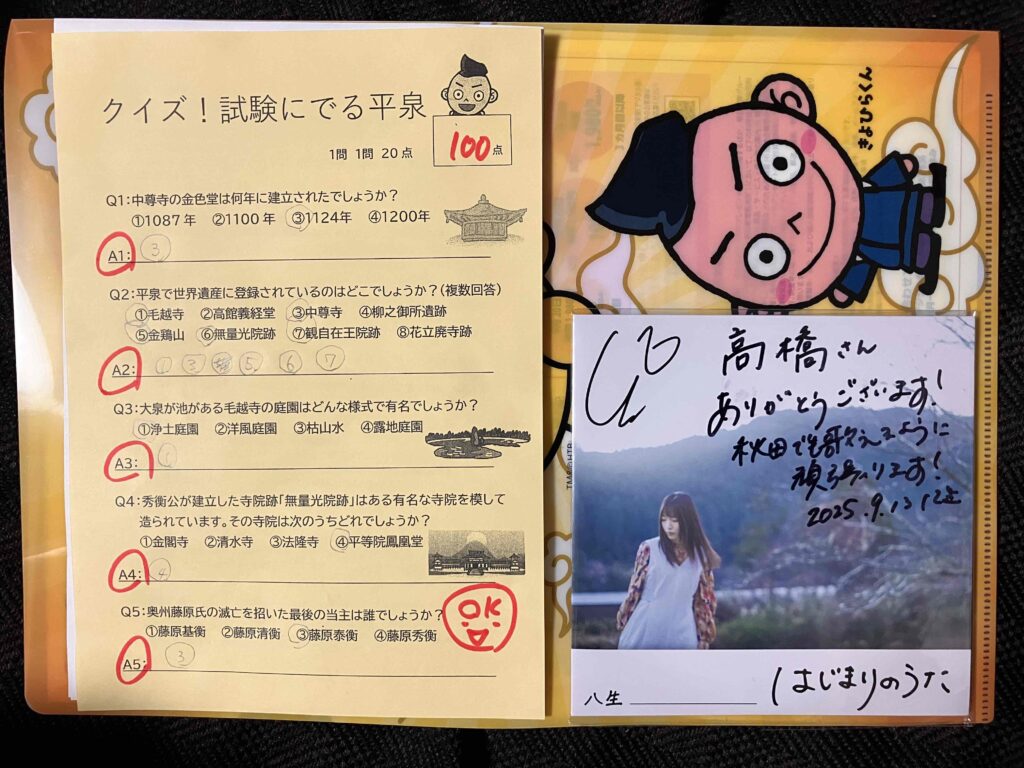 クイズ！試験にでる平泉
100点
1問 1問 20点
Q1：中尊寺の金色堂は何年に建立されたでしょうか？
①1087年 ②1100年 ③1124年 ④1200年
A1： ③
Q2：平泉で世界遺産に登録されているのはどこでしょうか？（複数回答）
①毛越寺 ②高館義経堂 ③中尊寺 ④柳之御所遺跡
⑤金鶏山 ⑥無量光院跡 ⑦観自在王院跡 ⑧花立廃寺跡
A2： ① ③ ⑤ ⑥ ⑦
Q3：大泉が池がある毛越寺の庭園はどんな様式で有名でしょうか？
①浄土庭園 ②洋風庭園 ③枯山水 ④露地庭園
A3： ①
Q4：秀衡公が建立した寺院跡「無量光院跡」はある有名な寺院を模して
造られています。その寺院は次のうちどれでしょうか？
①金閣寺 ②清水寺 ③法隆寺 ④平等院鳳凰堂
A4： ④
Q5：奥州藤原氏の滅亡を招いた最後の当主は誰でしょうか？
①藤原基衡 ②藤原清衡 ③藤原泰衡 ④藤原秀衡
A5： ③
OK
きよひらくん
高橋さん
ありがとうございます！
秋田でも歌えるように
頑張ります！
2025.9.13
八生
はじまりのうた